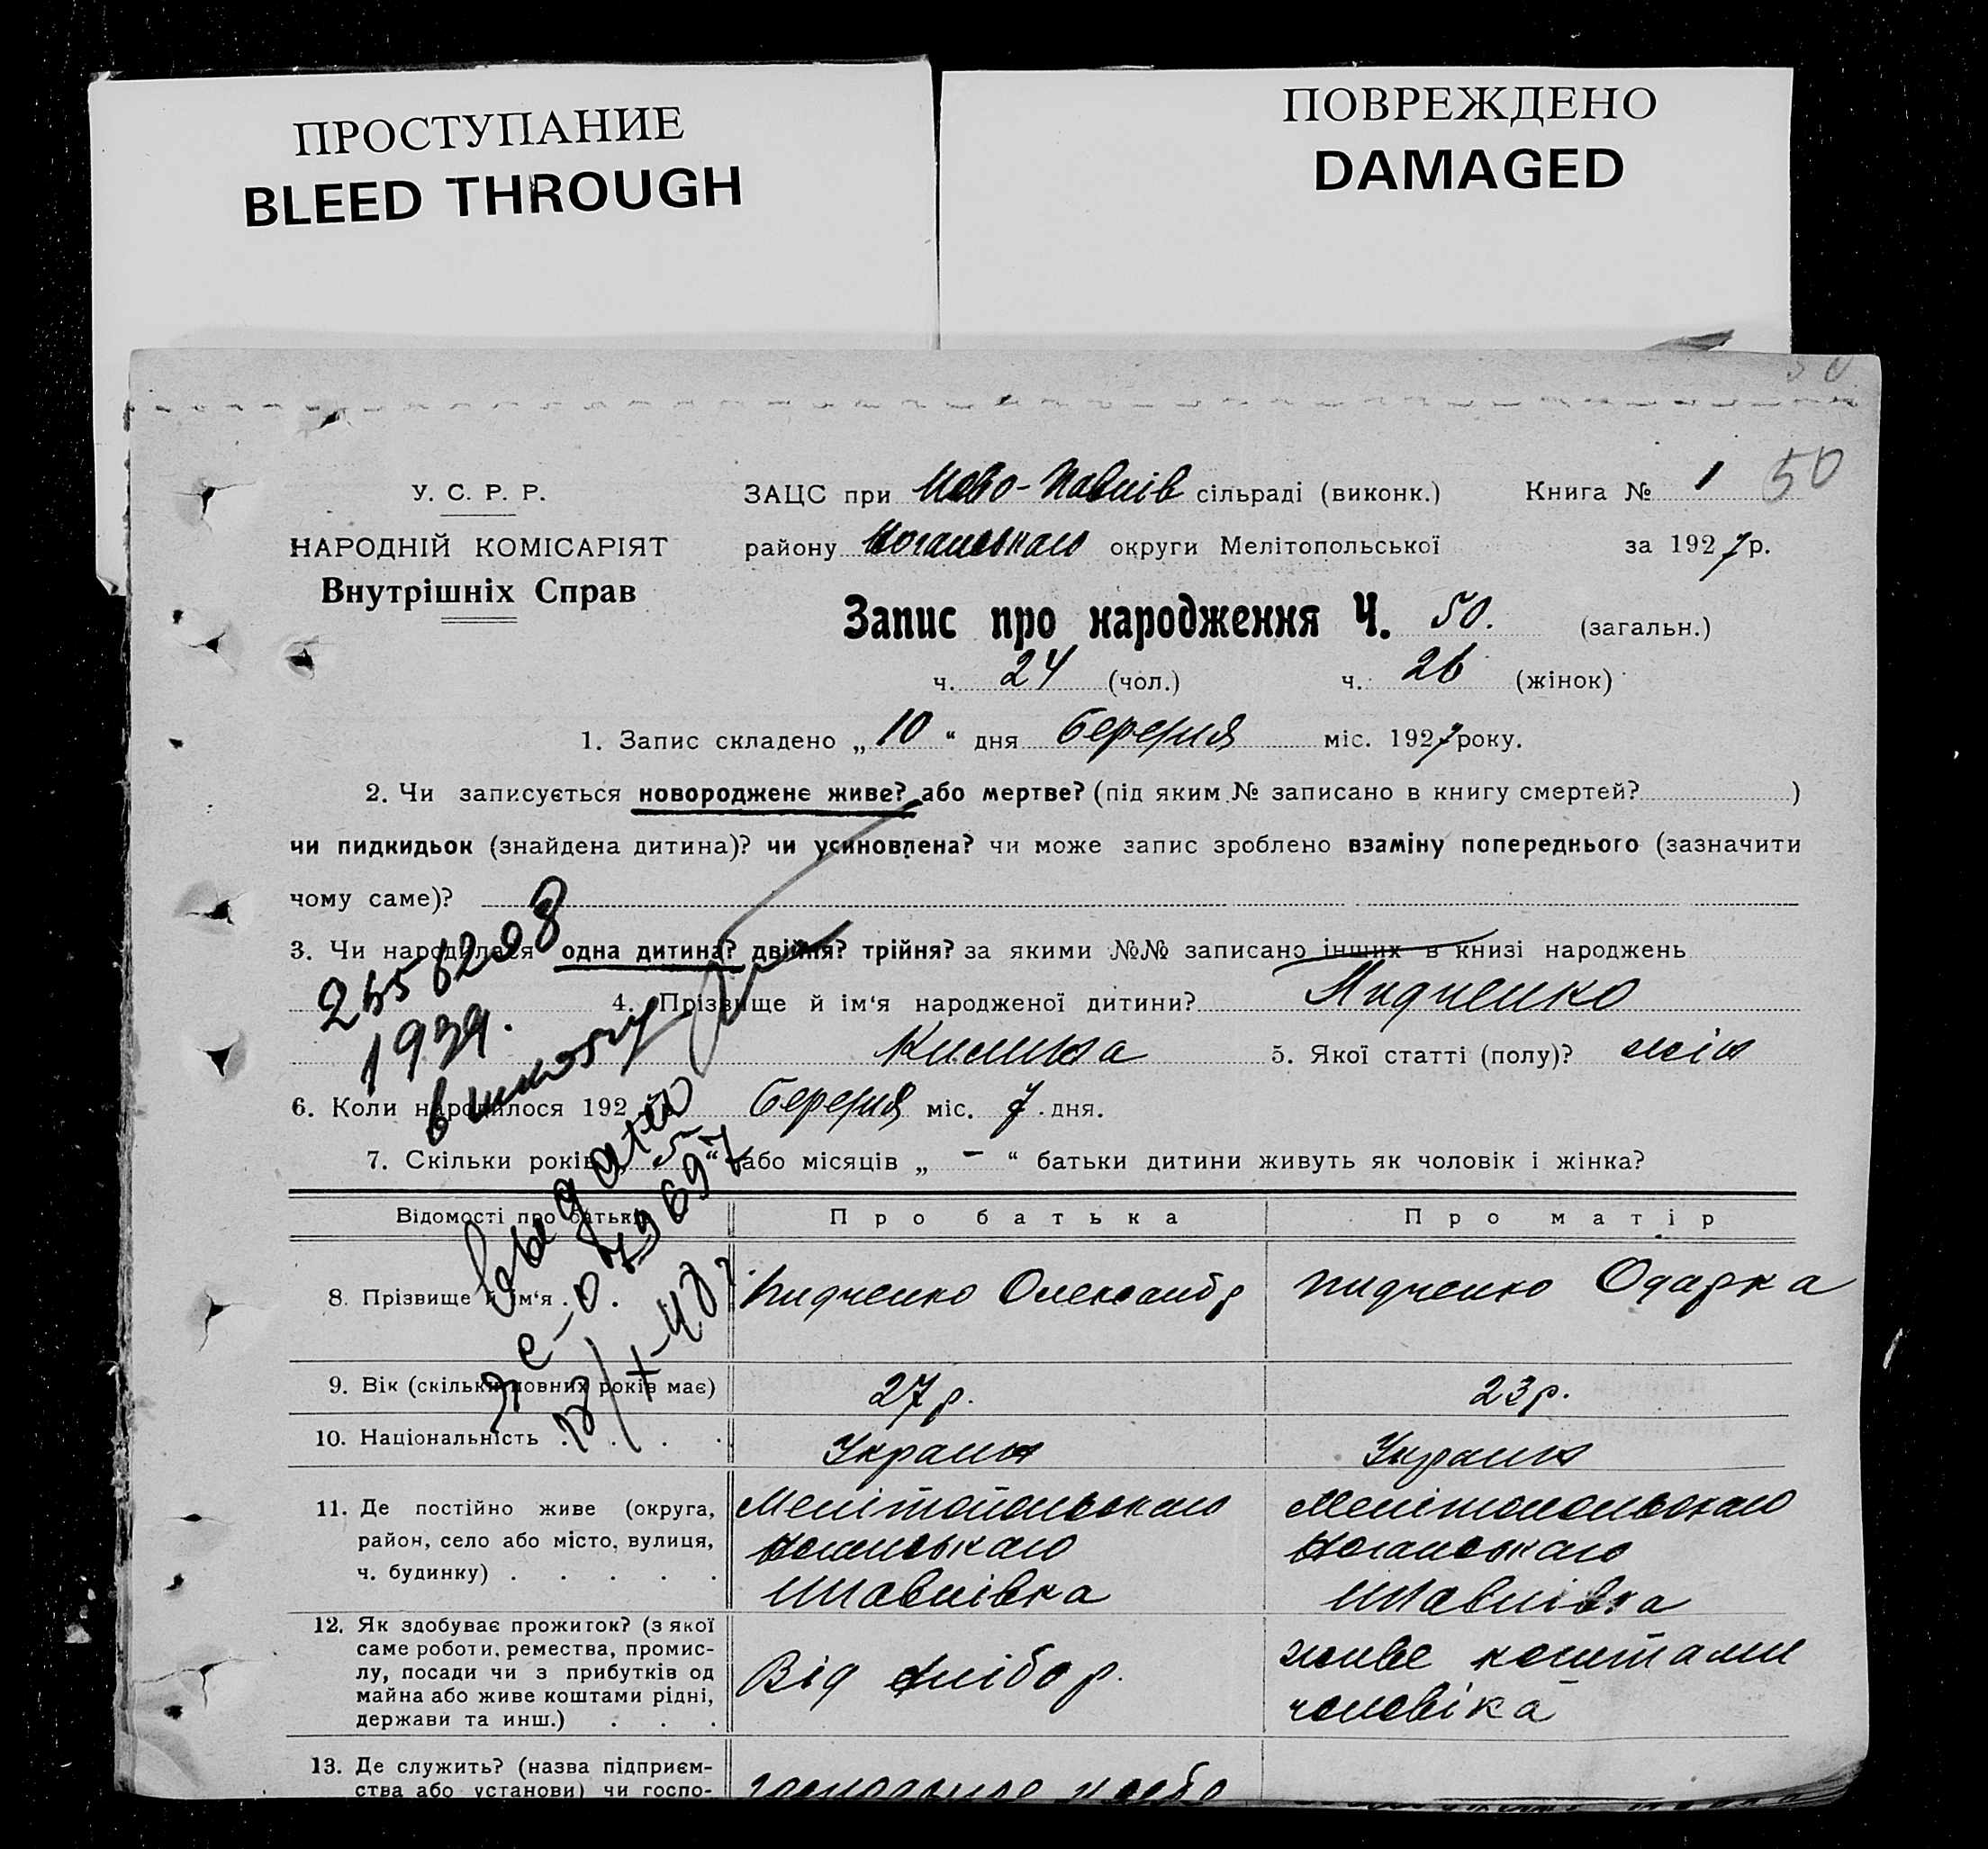 ПРОСТУПАНИЕ
BLEED THROUGH
ПОВРЕЖДЕНО
DAMAGED
50
У. С. Р. Р.
НАРОДНІЙ КОМІСАРІЯТ
Внутрішніх Справ
ЗАЦС при Ново-Павлів сільраді (виконк.) Книга № 1 50
району Ногайського округи Мелітопольської за 1927 р.
Запис про народження Ч. 50. (загальн.)
ч. 24 (чол.) ч. 26 (жінок)
1. Запис складено „ 10 “ дня березня міс. 1927 року.
2. Чи записується новороджене живе? або мертве? (під яким № записано в книгу смертей? )
чи пидкидьок (знайдена дитина)? чи усиновлена? чи може запис зроблено взаміну попереднього (зазначити
чому саме)?
3. Чи народилася одна дитина? двійня? трійня? за якими №№ записано інших в книзі народжень
4. Прізвище й ім‘я народженої дитини? Пидченко
Килина 5. Якої статті (полу)? жін
6. Коли народилося 192 березня міс. 7 дня.
7. Скільки років „ 5 “ або місяців „ – “ батьки дитини живуть як чоловік і жінка?
1939.
Відомості про батьків Про батька Про матір
8. Прізвище й ім‘я . Пидченко Олександр Пидченко Одарка
9. Вік (скільки повних років має) 27 р. 23 р.
10. Національність . . . . Україн Україн
11. Де постійно живе (округа,
район, село або місто, вулиця,
ч. будинку) . . . . .
Мелітопольського
Ногайського
НПавлівка
Мелітопольського
Ногайського
НПавлівка
12. Як здобуває прожиток? (з якої
саме роботи, ремества, промис-
лу, посади чи з прибутків од
майна або живе коштами рідні,
держави та инш.) . . .
Від хлібор.
живе коштами
чоловіка
13. Де служить? (назва підприєм-
ства або установи) чи госпо-